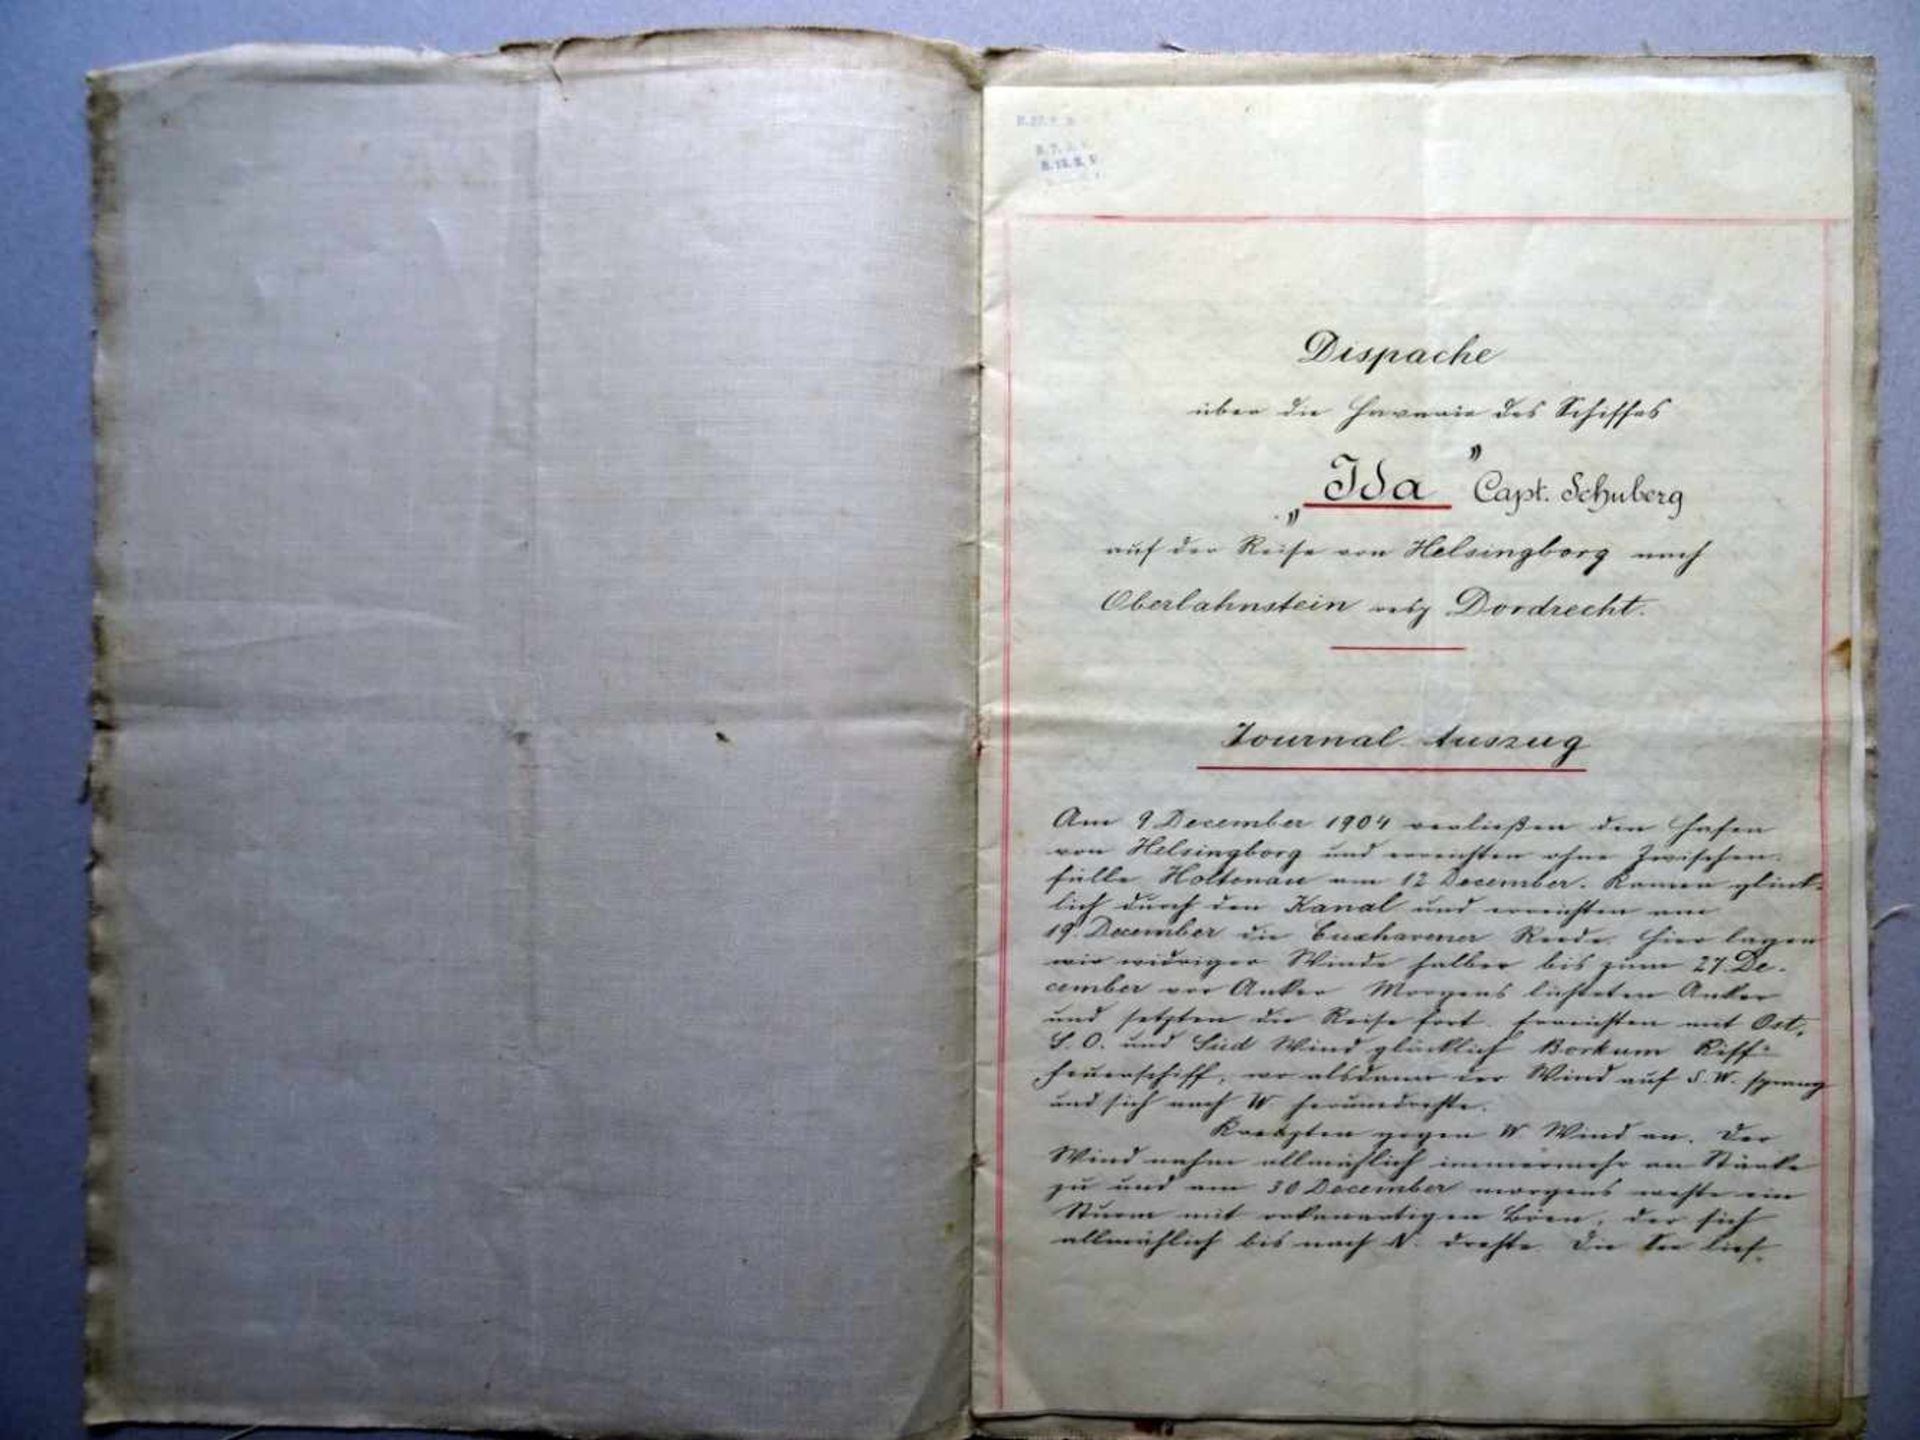 Dispache
über die Havarie des Schiffes
„Ida" Capt. Schuberg
auf der Reise von Helsingborg nach
Oberlahnstein resp Dordrecht.
Journal-Auszug
Am 9 December 1904 verließen den Hafen
von Helsingborg und erreichten ohne Zwischen-
fälle Holtenau am 12 December. Kamen glück-
lich durch den Kanal und erreichten am
19. December die Cuxhavener Reede. Hier lagen
wir widriger Winde halber bis zum 27. De-
cember vor Anker Morgens lichteten Anker
und setzten die Reise fort. Erreichten mit Ost,
S. O. und Süd Wind glücklich Borkum Riff-
feuerschiff, wo alsdann der Wind auf S. W. sprang
und sich nach W herumdrehte.
Kreuzten gegen W Wind an. Der
Wind nahm allmählich immermehr an Stärke
zu und am 30 December morgens wehte ein
Sturm mit orkanartigen Böen, der sich
allmählich bis nach N. drehte. Die See lief